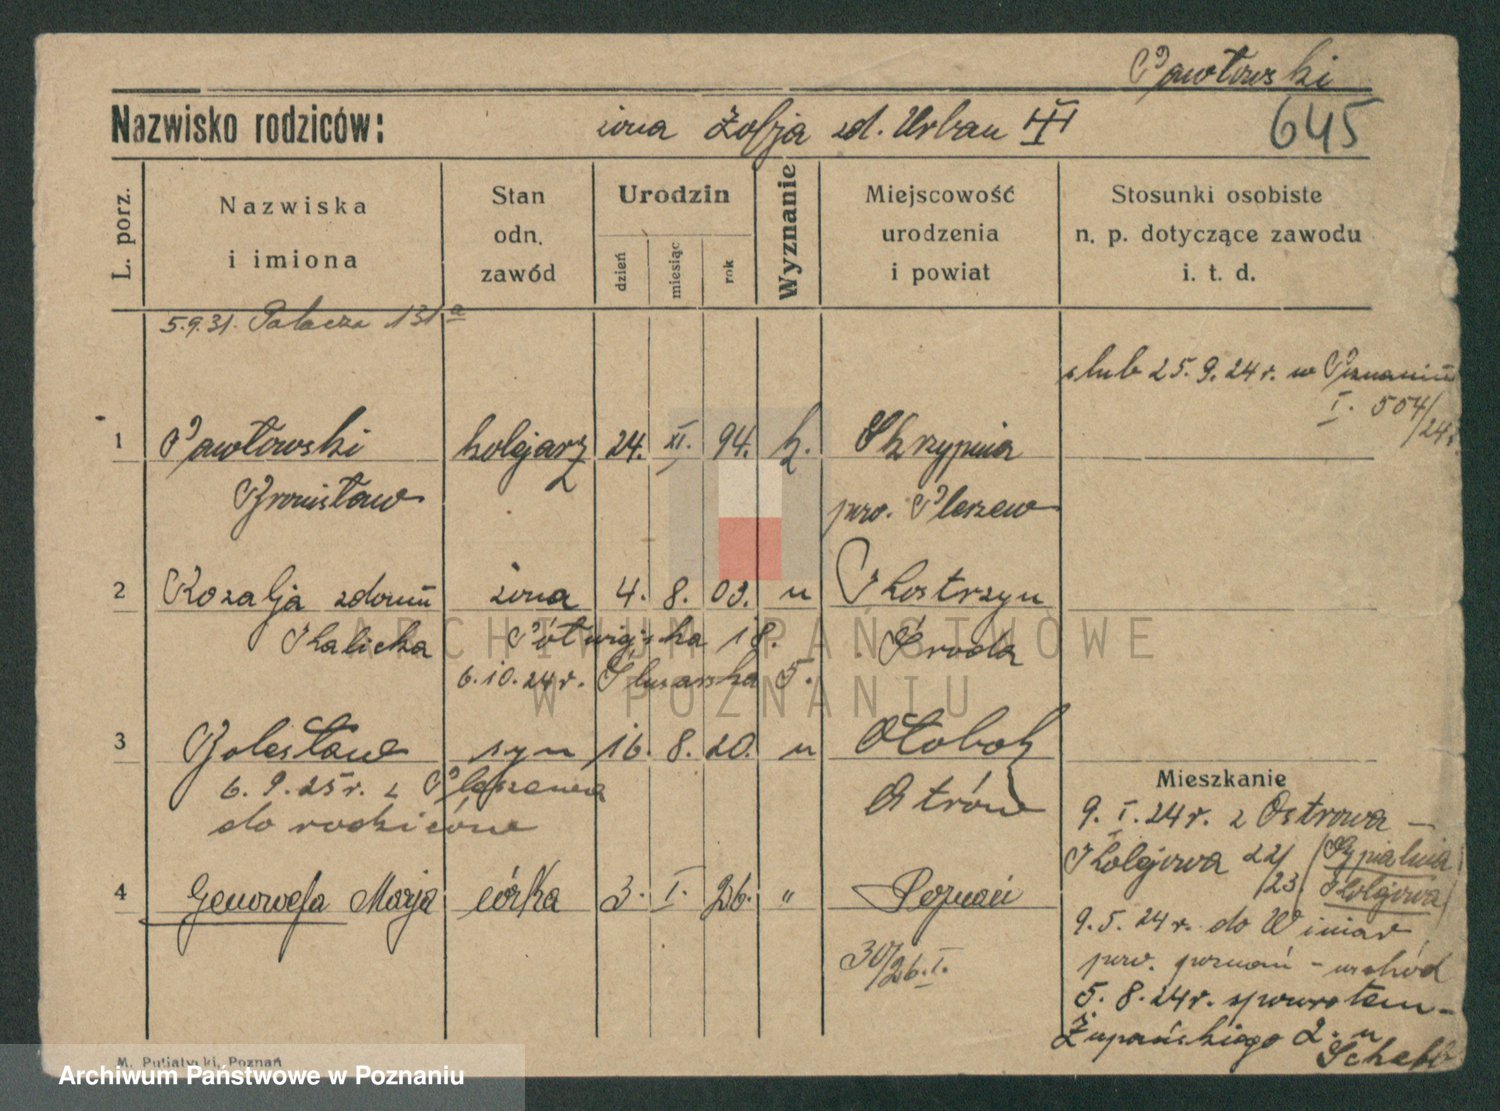 Pawłowski
Nazwisko rodziców: żona Zofja zd. Urban III 645
L. porz.
Nazwiska i imiona
Stan odn. zawód
Urodzin
dzień
miesiąc
rok
Wyznanie
Miejscowość urodzenia i powiat
Stosunki osobiste n. p. dotyczące zawodu i. t. d.
5.9.31. Palacza 131a
ślub 25.9.24r. w Poznaniu
I. 504/24r.
1 Pawłowski kolejarz 24. XI. 94. k. Skrzypnia
Bronisław pow. Pleszew
2 Rozalja zdomu żona 4. 8. 03. " Kostrzyn
Skalicka Półwiejska 18. Środa
6.10.24r. Ślusarska 5.
3 Bolesław syn 16. 8. 20. " Ołobok
6.9.25r. z Pleszewa Ostrów
do rodziców
4 Genowefa Marja córka 3. I. 26. " Poznań
30/26.I.
Mieszkanie
9.I.24r. z Ostrowa –
Kolejowa 22/23 (Sypialnia
Kolejowa)
9.5.24r. do Winiar
pow. poznań – wschód
5.8.24r. spowrotem –
Żupańskiego 2. u
M. Putiatycki, Poznań
ARCHIWUM PAŃSTWOWE
W POZNANIU
Archiwum Państwowe w Poznaniu